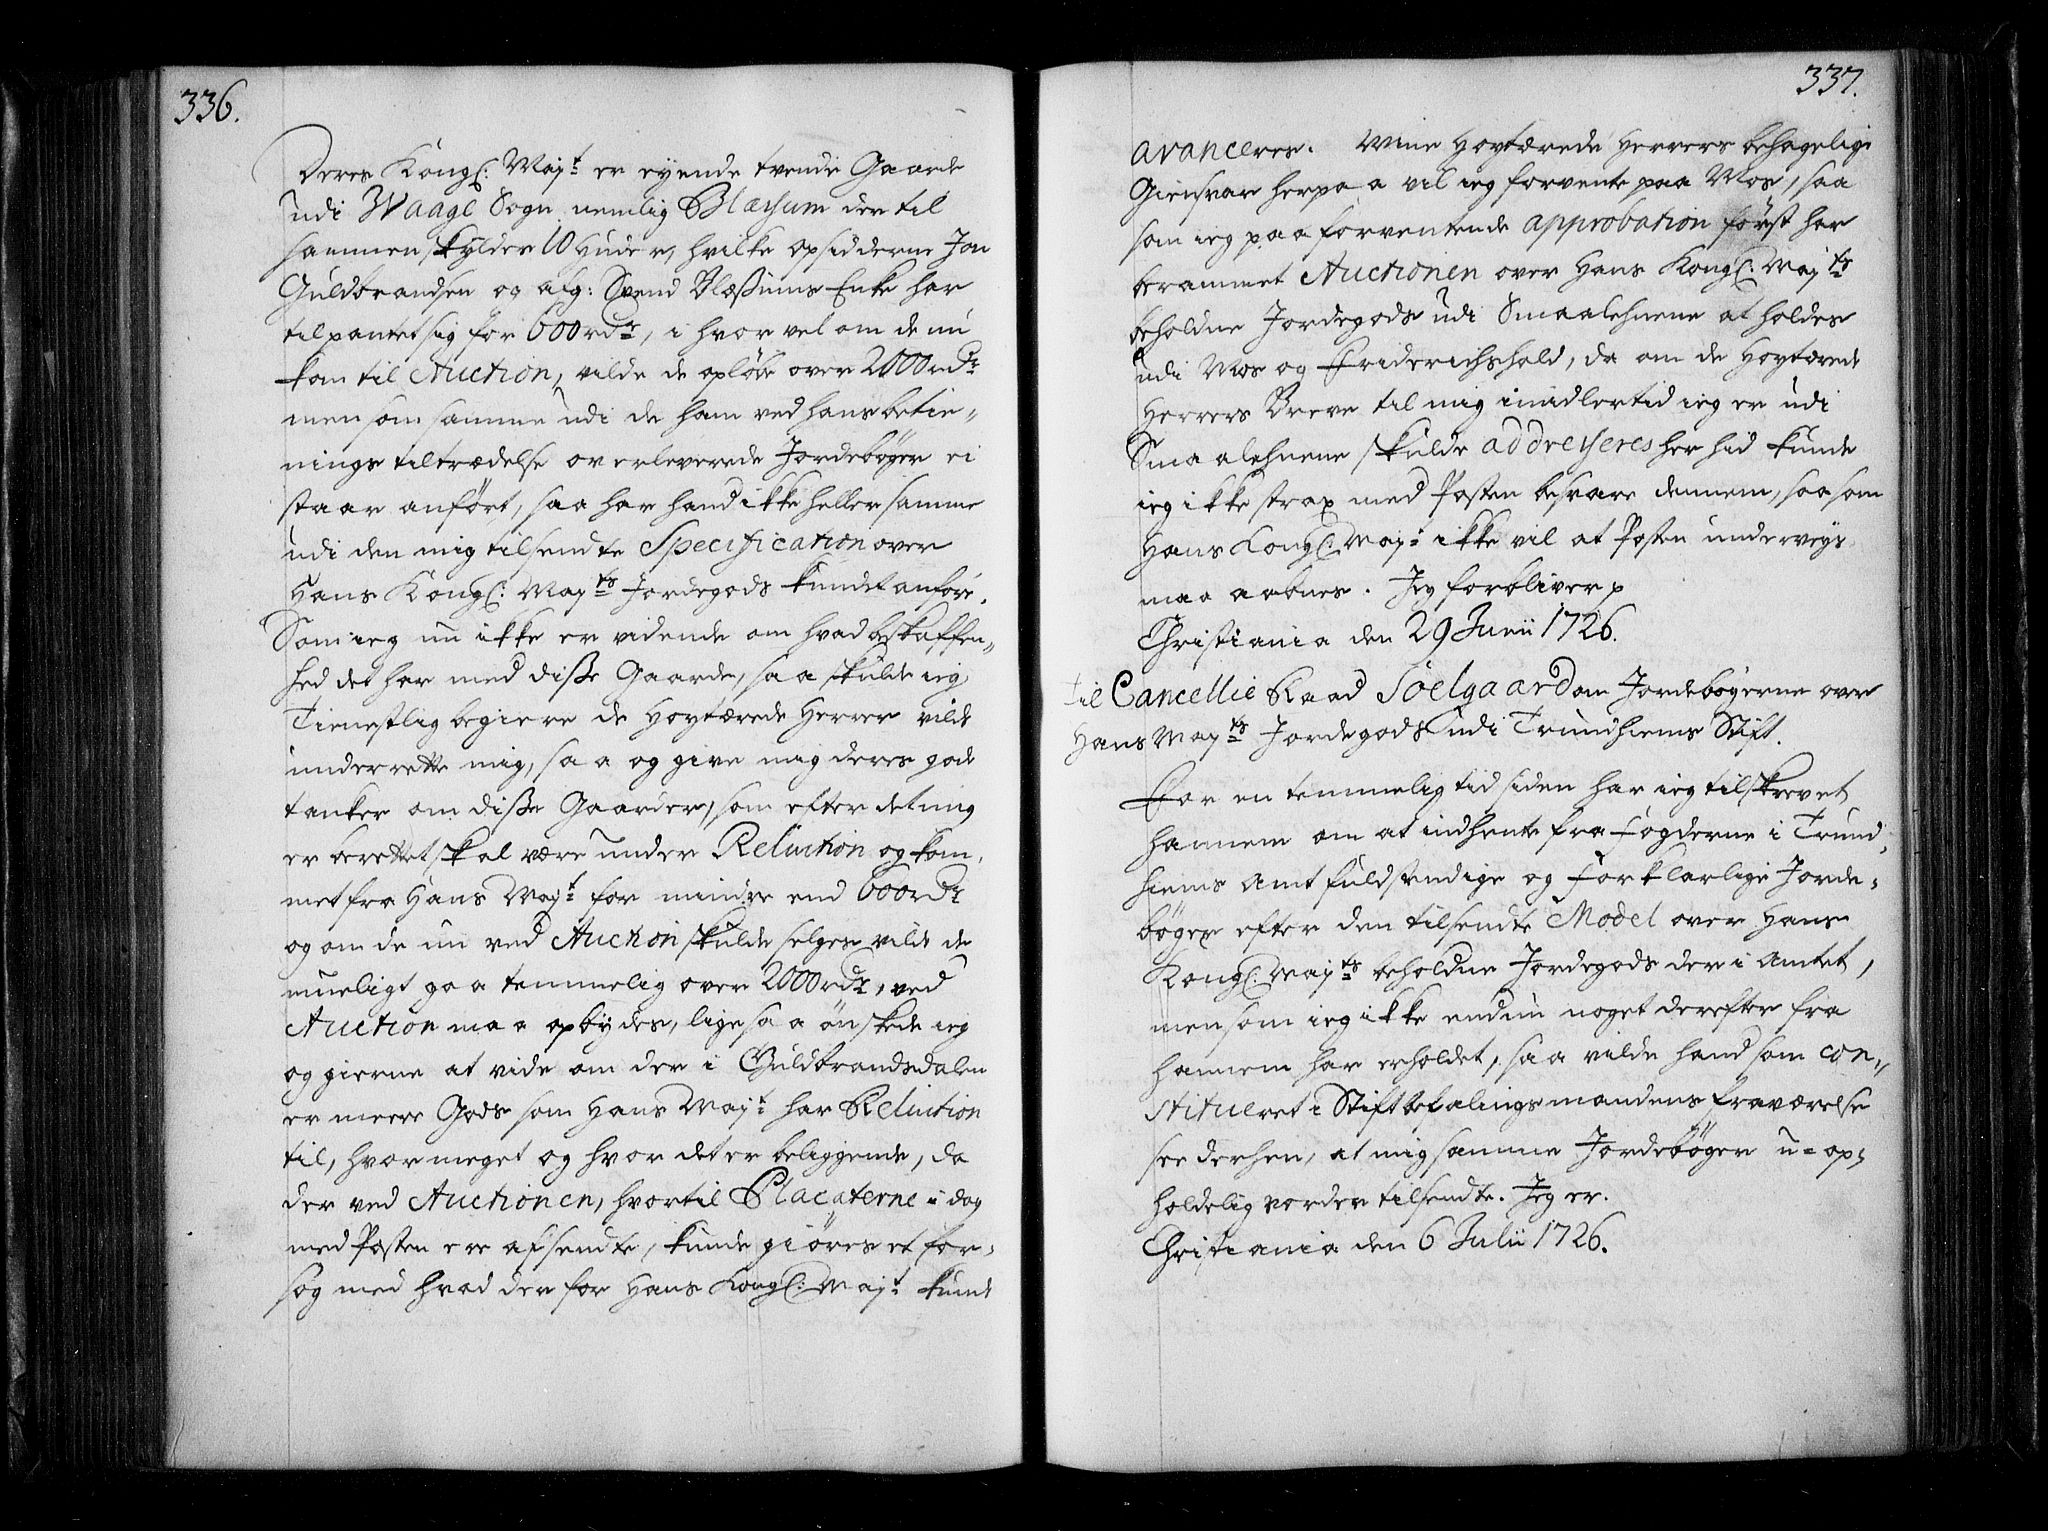 336.
Deres Kongl: Maj.t er eyende tvende Gaarde
udi Waage Sogn, nemlig Blæssum der til
sammen skylder 10 Huder, hvilke opsidderne Jon
Guldbrandsen og afg: Svend Blæssums Enke har
tilpantet sig for 600 rdr, i hvor vel om de nu
kom til Auction, vilde de opløbe over 2000 rdr
men som samme udi de ham ved hans betie-
nings tiltrædelse overleverede Jordebøger ei
staar anført, saa har hand ikke heller samme
udi den mig tilsendte Specification over
Hans Kongl: May.ts Jordegods kundet anføre.
Som ieg nu ikke er vidende om hvad beskaffen-
hed det har med disse Gaarde, saa skulde ieg
Tienestlig begiere de Høytærede Herrer vilde
underrette mig, saa og give mig deres gode
tanker om disse Gaarder, som efter det mig
er berettet skal være under Reluition og kom,
met fra Hans May.t for mindre end 600 rdr
og om de nu ved Auction skulde selges vilde de
mueligt gaa temmelig over 2000 rdr, ved
Auction maa opbydes, ligesaa ønskede ieg
og gierne at vide om der i Guldbrandsdalen
er meere Gods som Hans May.t har Reluition
til, hvor meget og hvor det er beliggende, da
der ved Auctionen, hvortil Placaterne i dag
med Posten ere afsendte, kunde giøres et for-
søg med hvad der for Hans Kongl: Maj.t kunde
337.
avanceres. Mine Høytærede Herrers behagelige
Giensvar herpaa vil ieg forvente paa Mos, saa
som ieg paa forventende approbation først har
berammet Auctionen over Hans Kongl: Maj.ts
beholdne Jordegods udi Smaalehnene at holdes
udi Mos og Friderichshald, da om de Høytærede
Herrers Breve til mig imidlertid ieg er udi
Smaalehnene skulde addresseres her hid kunde
ieg ikke strax med Posten besvare dennem, saasom
Hans Kongl: Maj.t ikke vil at Posten underveys
maa aabnes. Jeg forbliver p
Christiania den 29 Junii 1726.
Til Cancellie Raad Soelgaard om Jordebøgerne over
Hans May.ts Jordegods udi Trundhiems Stift.
For en temmelig tid siden har ieg tilskrevet
hannem om at indhente fra fogderne i Trund,
hiems Amt fuldstendige og forklarlige Jorde-
bøger efter den tilsendte Model over Hans
Kongl: Maj.ts beholdne Jordegods der i Amtet,
men som ieg ikke endnu noget derefter fra
hannem har erholdet, saa vilde hand som con-
stitueret i Stiftbefalingsmandens fraværelse
see derhen, at mig samme Jordebøger u-op-
holdelig vorder tilsendte. Jeg er.
Christiania den 6 Julii 1726.